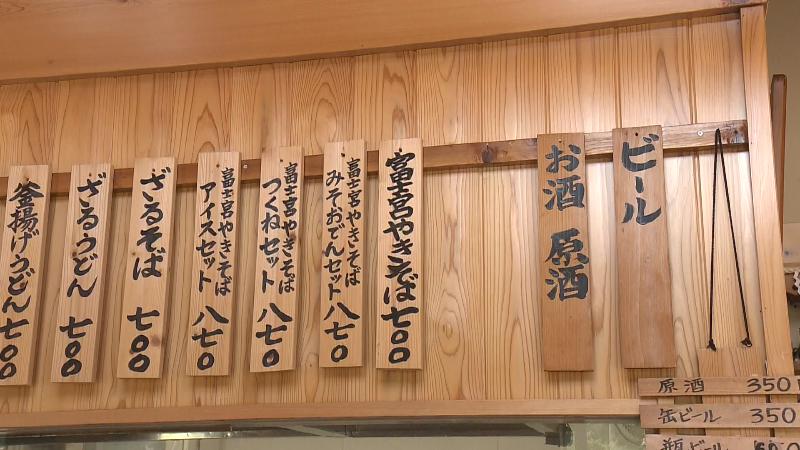 ビール
お酒 原酒
富士宮やきそば 七〇〇
富士宮やきそば
みそおでんセット 八七〇
富士宮やきそば
つくねセット 八七〇
富士宮やきそば
アイスセット 八七〇
ざるそば 七〇〇
ざるうどん 七〇〇
釜揚げうどん 七〇〇
原酒 350
缶ビール 350
瓶ビール